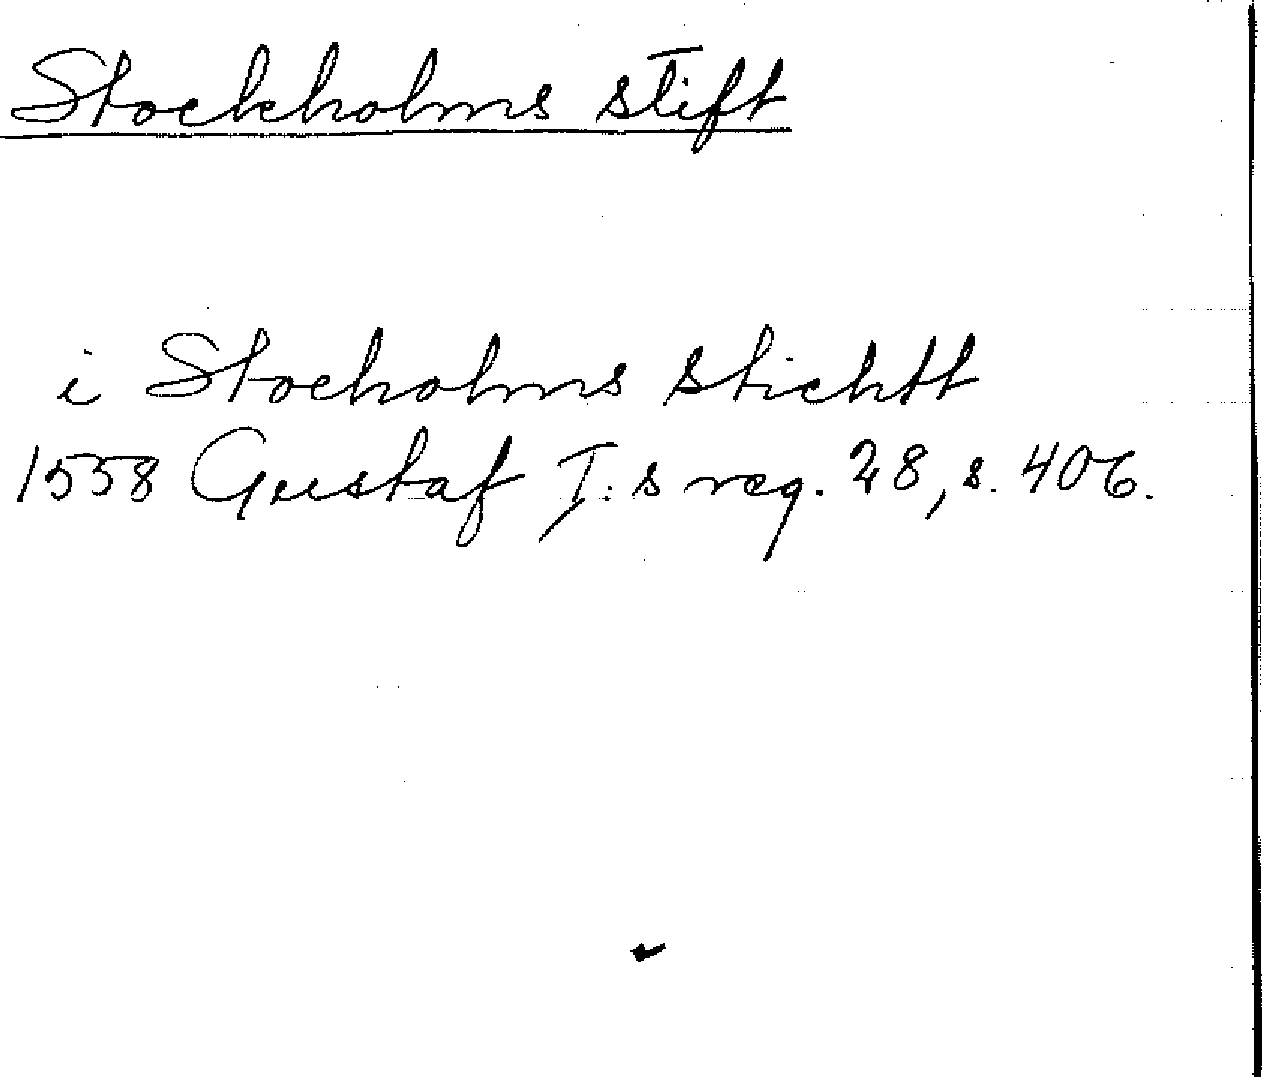 Stockholms stift
i Stocholms stichtt
1558 Gustaf I:s reg. 28, s. 406.